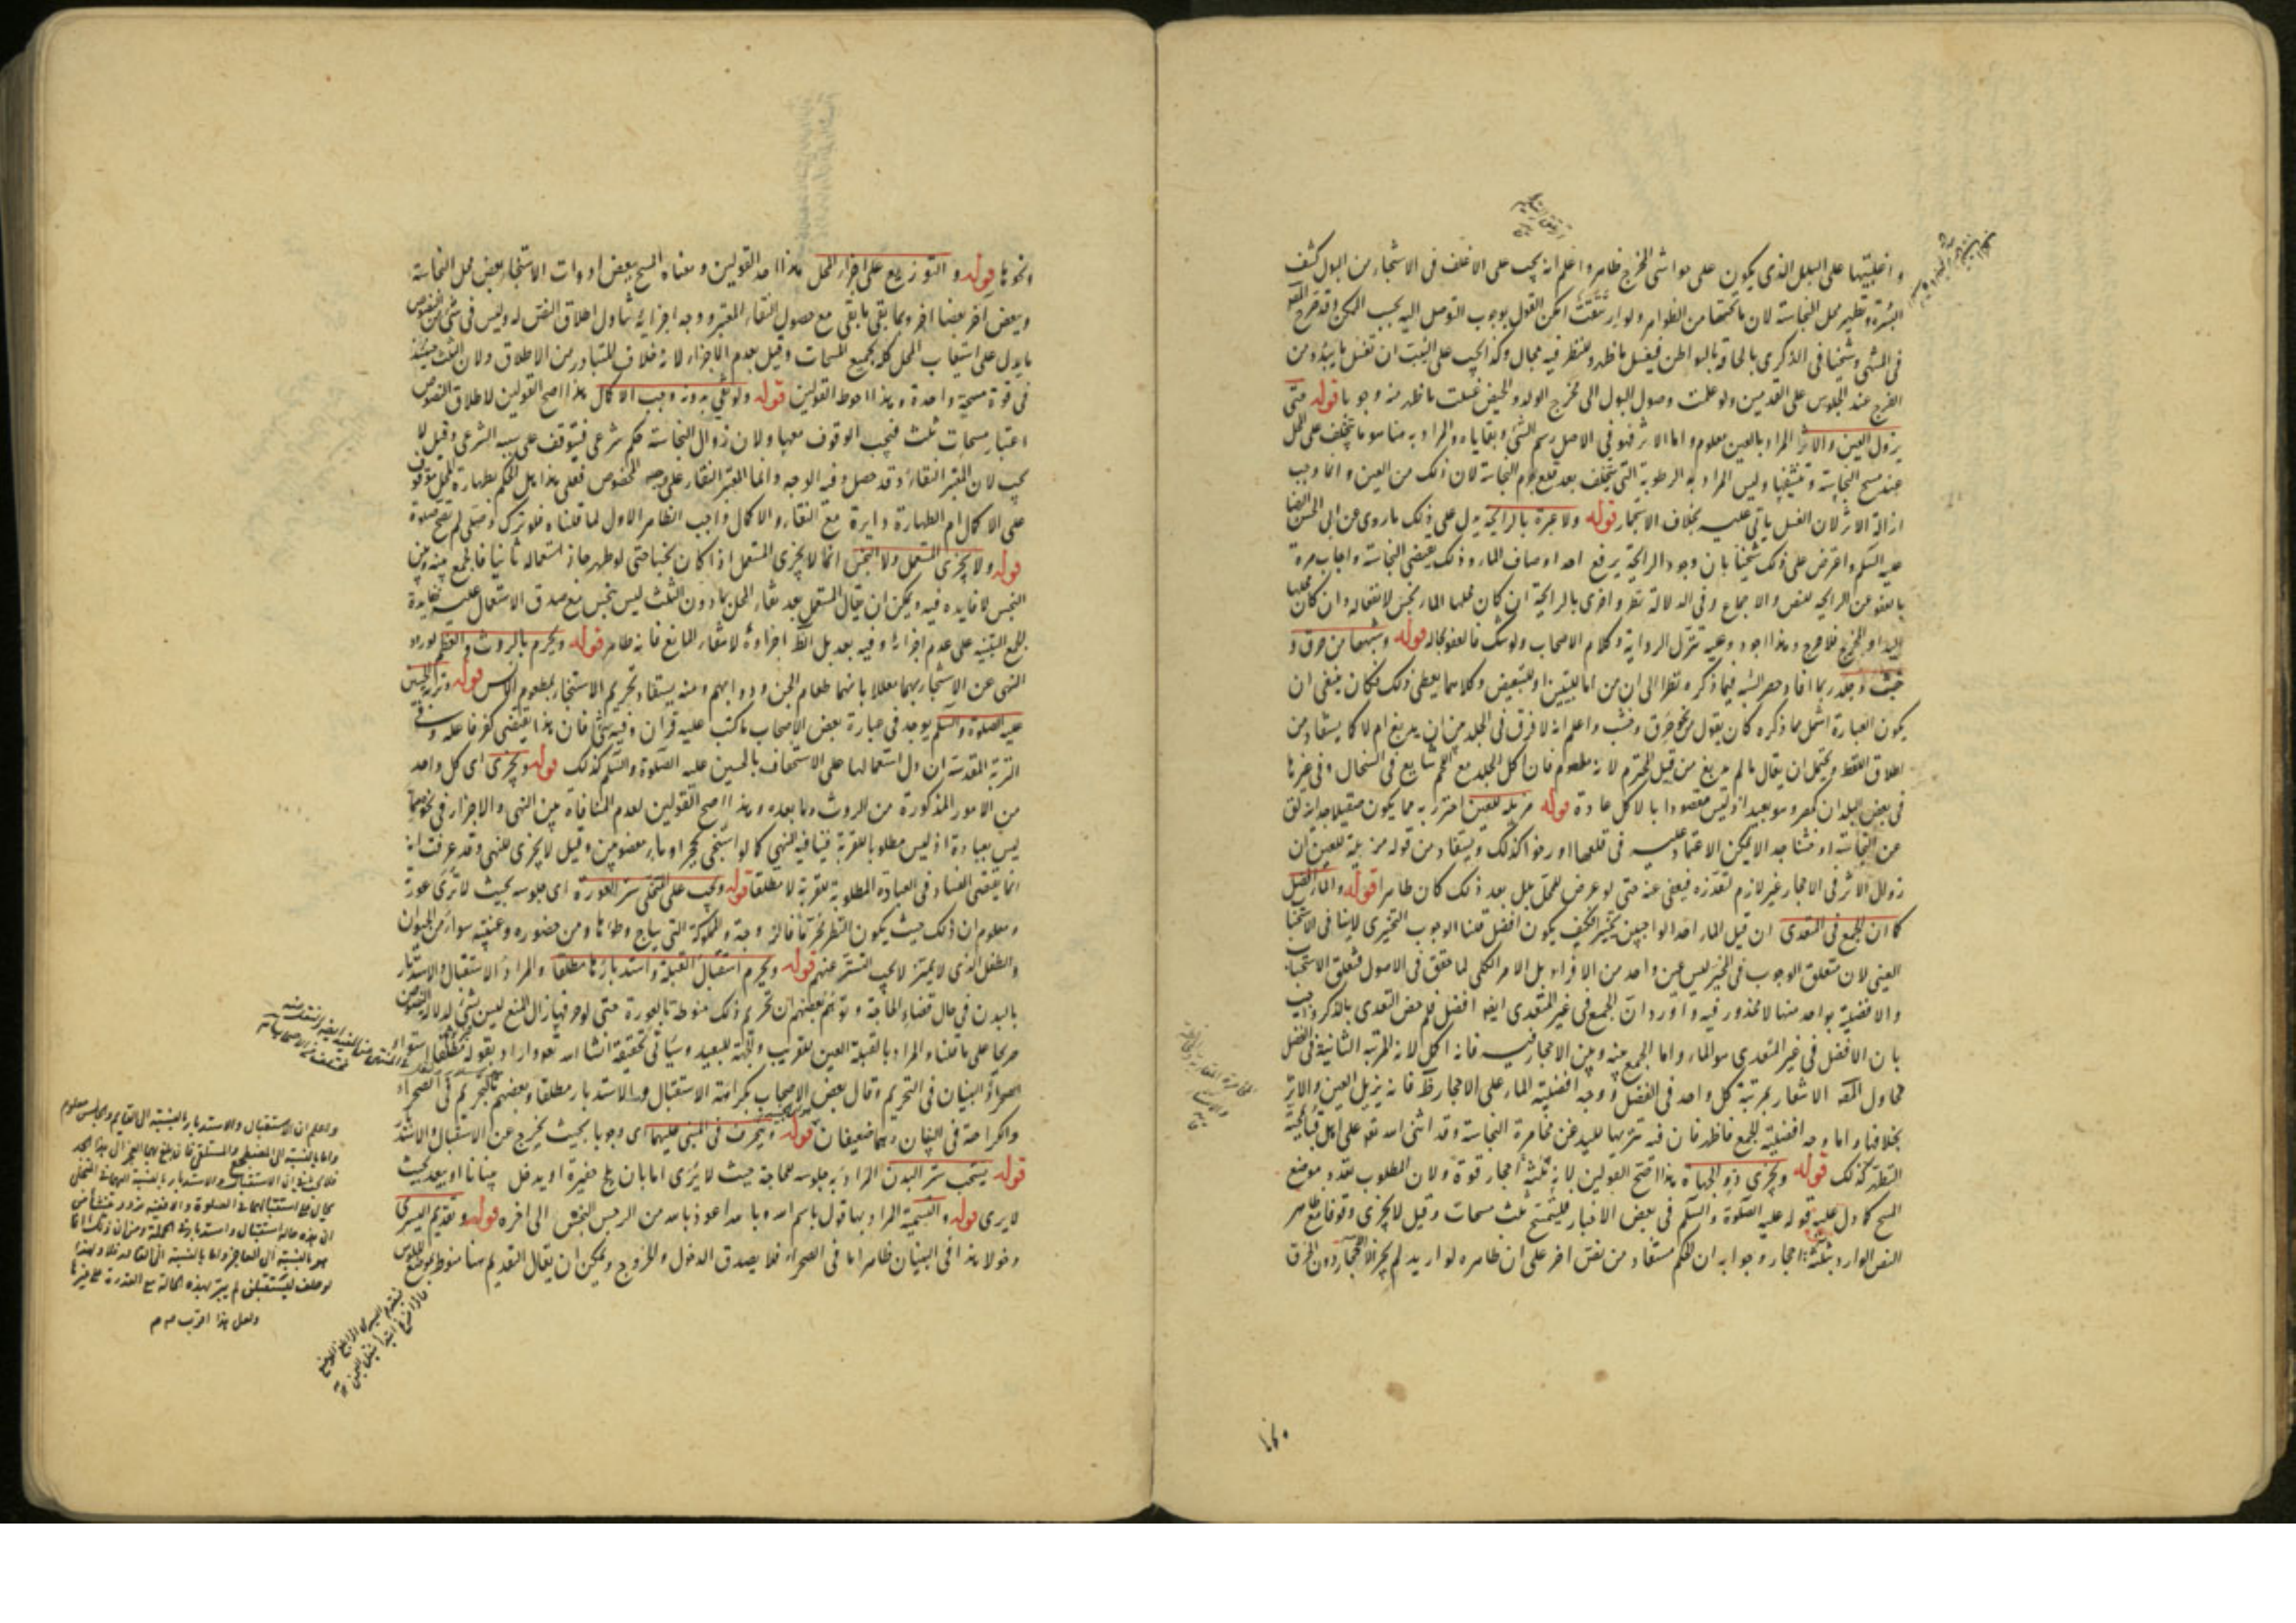 واغلبيتها على البلل الذى يكون على حواشى المخرج ظاهر واعلم انه يجب على الاغلف فى الاستنجاء من البول كشف
البشرة وتطهير محل النجاسة لان ما تحتها من الظواهر ولو ارتتقت امكن القول بوجوب التوصل اليه بحسب الممكن وقد صرح المص
فى المنتهى وشيخنا فى الذكرى بالحاقه بالبواطن فيغسل ما ظهر وللنظر فيه مجال وكذا يجب على الثيب ان تغسل ما يبدو من
الفرج عند الجلوس على القدمين ولو علمت وصول البول الى مخرج الولد والحيض غسلت ما ظهر منه وجوبا قوله حتى
يزول العين والاثر المراد بالعين معلوم واما الاثر فهو فى الاصل رسم الشئ وبقاياه والمراد به هنا هو ما يتخلف على المحل
عند مسح النجاسة وتنشيفها وليس المراد به الرطوبة التى يتخلف بعد قلع جرم النجاسة لان ذلك من العين وانما وجب
ازالة الاثر لان الغسل ياتى عليه بخلاف الاستجمار قوله ولا عبرة بالرايحة يدل على ذلك ما روى عن ابى الحسن الرضا
عليه السلم واعترض على ذلك شيخنا بان وجود الرايحة يرفع احد اوصاف الماء وذلك يقتضى النجاسة واجاب مرة
بالعفو عن الرايحة للنص والاجماع وفى الدلالة نظر واخرى بالرايحة ان كان محلها الماء نجس لانفعاله وان كان محلها
اليد او المخرج فلا حرج وهذا اجود وعليه تنزل الرواية وكلام الاصحاب ولو شك فالعفو بحاله قوله وشبهها من خرق و
خشب وجلد ربما افاد حصر الشبه فيما ذكره نظرا الى ان من اما للتبيين او للتبعيض وكلاهما يعطى ذلك فكان ينبغى ان
يكون العبارة اشمل مما ذكره كان يقول من نحو خرق وخشب واعلم انه لا فرق فى الجلد بين ان يدبغ ام لا كما يستفاد من
اطلاق اللفظ ويحتمل ان يقال ما لم يدبغ من قبيل المحترم لانه مطعوم فان اكل الجلد مع اللحم شايع فى السخال وفى غيرها
فى بعض البلدان كمصر وهو بعيد اذ ليس مقصودا بالاكل عادة قوله مزيلة للعين احترز به مما يكون صقيلا جدا يزلق
عن النجاسة او خشنا جدا لا يمكن الاعتماد عليه فى قلعها او رخوا كذلك ويستفاد من قوله مزيلة للعين ان
زوال الاثر فى الاحجار غير لازم لتعذره فيعفى عنه حتى لو عرض للمحل بلل بعد ذلك كان طاهرا قوله والماء افضل
كما ان الجمع فى المتعدى ان قيل الماء احد الواجبين تخييرا فكيف يكون افضل قلنا الوجوب التخييرى لا ينافى الاستحباب
العينى لان متعلق الوجوب فى المخير ليس عين واحد من الافراد بل الامر الكلى لما حقق فى الاصول فتعلق الاستحباب
والافضلية بواحد منها لا محذور فيه واورد ان الجمع فى غير المتعدى ايضا افضل فلم خص المتعدى بالذكر واجيب
بان الافضل فى غير المتعدى هو الماء واما الجمع بينه وبين الاحجار فيه فانه اكمل لانه المرتبة الثانية فى الفضل
فحاول المص الاشعار بمرتبة كل واحد فى الفضل ووجه افضلية الماء على الاحجار ظ فانه يزيل العين والاثر
بخلافها واما وجه افضلية الجمع فاظهر فان فيه تنزيها لليد عن مخامرة النجاسة وقد اثنى الله تعالى على اهل قبا لمحبة
التطهر كذلك قوله ويجزى ذو الجهات هذا اصح القولين لانه ثلثة احجار قوة ولان المطلوب تعدد موضع
المسح كما دل عليه قوله عليه الصلوة والسلم فى بعض الاخبار فليتمسح ثلث مسحات وقيل لا يجزى وقوفا مع ظاهر
النص الوارد بثلثة احجار وجوابه ان الحكم مستفاد من نص اخر على ان ظاهره لو اريد لم يجز الا الاحجار دون الخرق
ونحوها قوله والتوزيع على اجزاء المحل هذا احد القولين ومعناه المسح ببعض ادوات الاستنجاء بعض محل النجاسة
وببعض اخر بعضا اخر وبما بقى ما بقى مع حصول النقاء المعتبر ووجه اجزائه تناول اطلاق النص له وليس فى شئ من النصوص
ما يدل على استيعاب المحل كله بجميع المسحات وقيل بعدم الاجزاء لانه خلاف المتبادر من الاطلاق ولان الثلث حينئذ
فى قوة مسحة واحدة وهذا احوط القولين قوله ولو نقى بدونه وجب الاكمال هذا اصح القولين لاطلاق النصوص
اعتبار مسحات ثلث فيجب الوقوف معها ولان زوال النجاسة حكم شرعى فيتوقف على سببه الشرعى وقيل لا
يجب لان المعتبر النقاء وقد حصل وفيه الوجه وانما المعتبر النقاء على وجه مخصوص فعلى هذا هل الحكم بطهارة المحل موقوف
على الاكمال ام الطهارة دايرة مع النقاء والاكمال واجب الظاهر الاول لما قلناه فلو ترك وصلى لم تصح صلوة
قوله ولا يجزى المستعمل ولا النجس انما لا يجزى المستعمل اذا كان نجسا حتى لو طهر جاز استعماله ثانيا فالجمع بينه وبين
النجس لا فايدة فيه ويمكن ان يقال المستعمل بعد نقاء المحل بما دون الثلث ليس بنجس مع صدق الاستعمال عليه ففايدة
الجمع التنبيه على عدم اجزائه وفيه بعد بل الظ اجزاؤه لانتفاء المانع فانه طاهر قوله ويحرم بالروث والعظم لورود
النهى عن الاستنجاء بهما معللا بانهما طعام الجن ودوابهم ومنه يستفاد تحريم الاستنجاء بمطعوم الانس قوله وتربة الحسين
عليه الصلوة والسلم يوجد فى عبارة بعض الاصحاب ما كتب عليه قران وفيه شئ فان هذا يقتضى كفر فاعله وفى
التربة المقدسة ان دل استعمالها على الاستخفاف بالحسين عليه الصلوة والسلم كذلك قوله ويجزى اى كل واحد
من الامور المذكورة من الروث وما بعده وهذا اصح القولين لعدم المنافاة بين النهى والاجزاء فى نحو مما
ليس بعبادة اذ ليس مطلوبا للقربة فينافيه النهى كما لو استنجى بحجر او ماء مغصوبين وقيل لا يجزى للنهى وقد عرفت انه
انما يقتضى الفساد فى العبادة المطلوبة للقربة لا مطلقا قوله ويجب على المتخلى ستر العورة اى جلوسه بحيث لا ترى عورته
ومعلوم ان ذلك حيث يكون النظر محرما فالزوجة والمملوكة التى يباح وطؤها ومن حضوره وغيبته سواء من الحيوان
والطفل الذى لا يميز لا يجب التستر عنهم قوله ويحرم استقبال القبلة واستدبارها مطلقا والمراد الاستقبال والاستدبار
بالبدن فى حال قضاء الحاجة وتوهم بعضهم ان تحريم ذلك منوط بالعورة حتى لو حرفها زال المنع ليس بشئ لدلالة النصوص
صريحا على ما قلناه والمراد بالقبلة العين للقريب والجهة للبعيد وسياتى تحقيقه انشاء الله تعالى واراد بقوله مطلقا استواء
الصحراء والبنيان فى التحريم وقال بعض الاصحاب بكراهة الاستقبال والاستدبار مطلقا وبعضهم بالتحريم فى الصحراء
والكراهة فى البنيان وهما ضعيفان قوله وينحرف فى المبنى عليهما اى وجوبا بحيث يخرج عن الاستقبال والاستدبار
قوله يستحب ستر البدن المراد به جلوسه للحاجة حيث لا يرى اما بان يلج حفيرة او يدخل بناء او يبعد بحيث
لا يرى قوله والتسمية المراد بها قول باسم الله وبالله اعوذ بالله من الرجس النجس الى اخره قوله وتقديم اليسرى
دخولا هذا فى البنيان ظاهر اما فى الصحراء فلا يصدق الدخول والخروج ويمكن ان يقال التقديم هنا منوط بموضع الجلوس
واعلم ان الاستقبال والاستدبار بالنسبة الى القايم والجالس معلوم
واما بالنسبة الى المضطجع والمستلقى
ولعل هذا اقرب